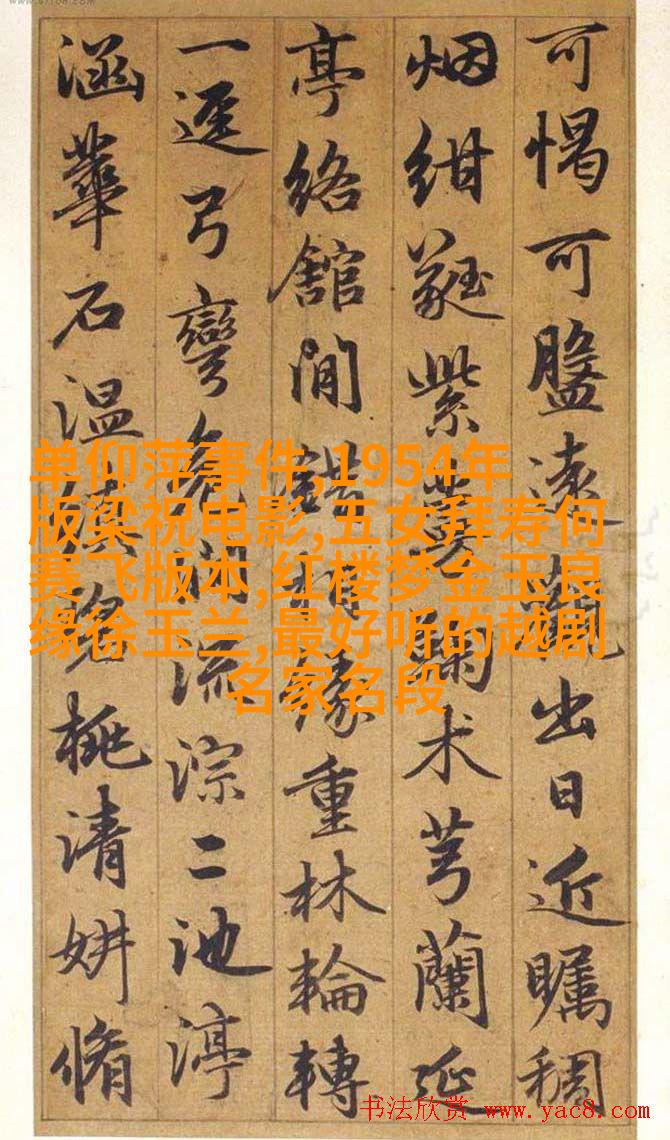 可愒可盬遠觀出日近矚稠
烟紺蕤紫術芎蘭延
亭絡館間錯緣重林輪轉
一逕弓彎澗流淙二池渟
涵華石温桃清妍脩
单仰萍事件,1954年
版梁祝电影,五女拜寿何
赛飞版本,红楼梦金玉良
缘徐玉兰,最好听的越剧
名家名段
书法欣赏 www.yac8.com